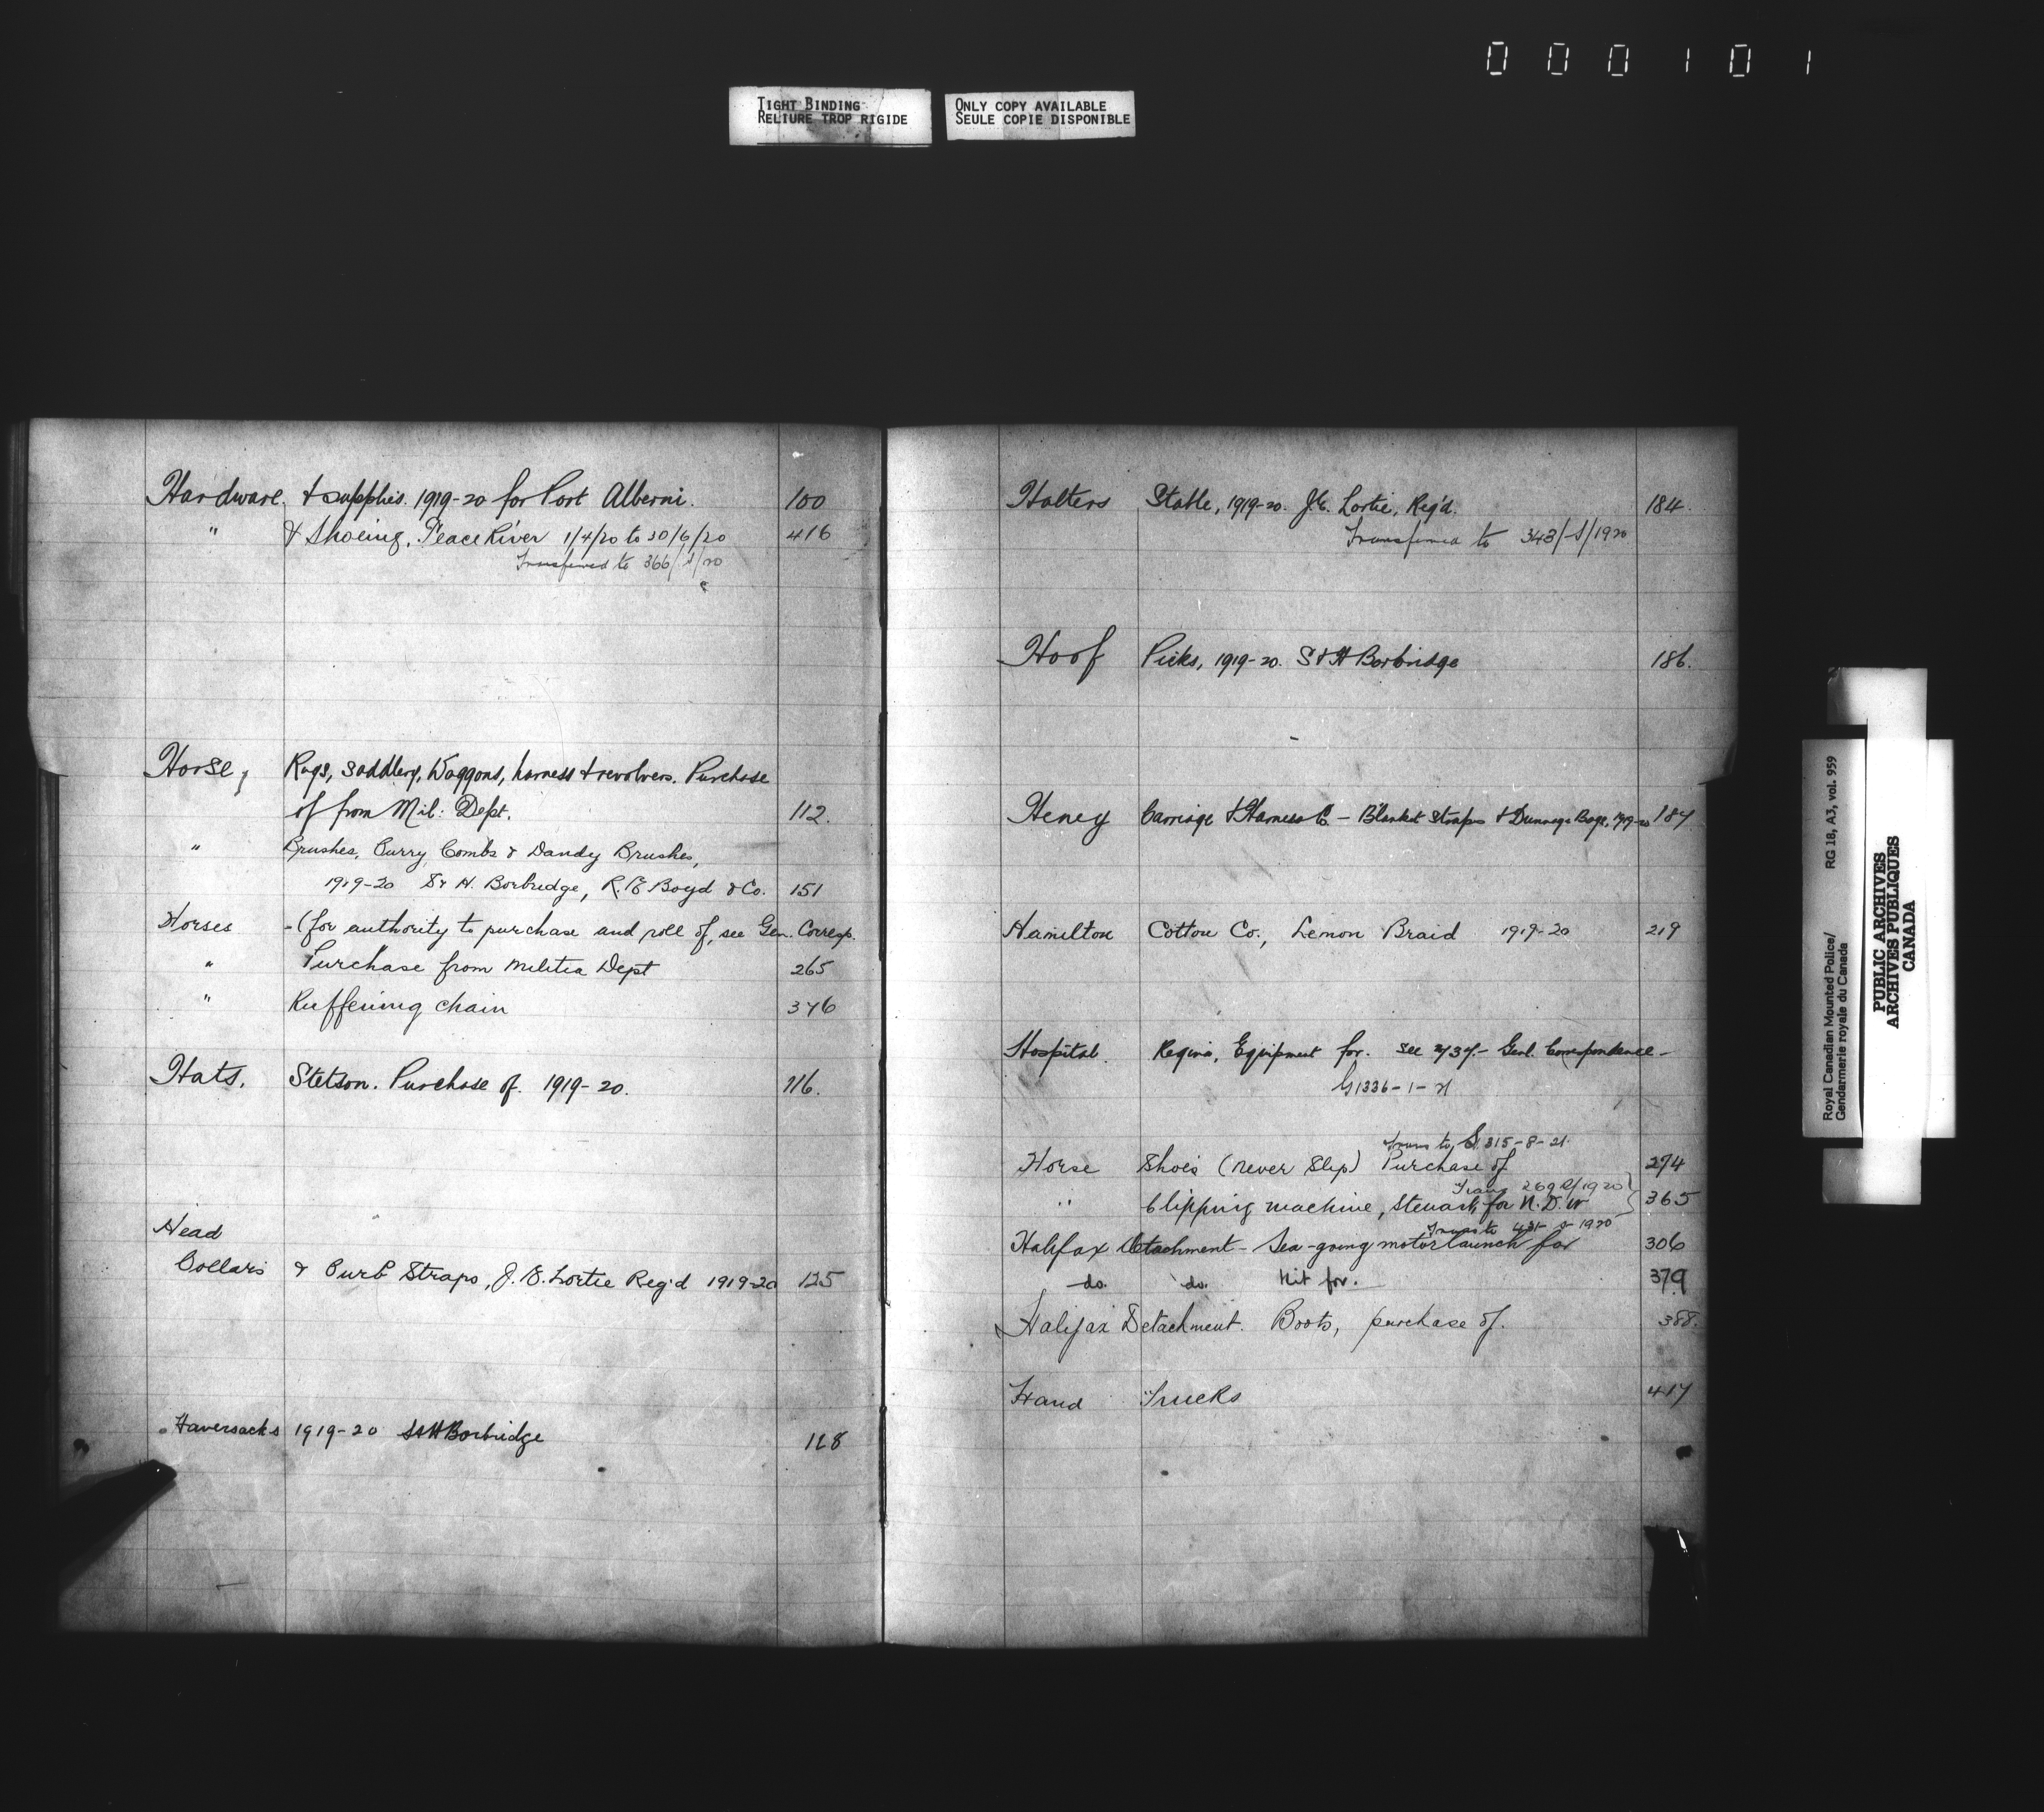 000101
TIGHT BINDING
RELIURE TROP RIGIDE
ONLY COPY AVAILABLE
SEULE COPIE DISPONIBLE
Hardware. & supplies. 1919-20 for Port Alberni. 100
" & Shoeing, Peace River 1/4/20 to 30/6/20 416
Transferred to 366/S/20
Horse, Rugs, Saddlery, Waggons, harness & revolvers. Purchase
of from Mil: Dept. 112.
" Brushes, Curry Combs & Dandy Brushes,
1919-20 S & H. Borbridge, R. E Boyd & Co. 151
Horses - (for authority to purchase and roll of, see Gen. Corresp.
" Purchase from Militia Dept 265
" chain 376
Hats. Stetson. Purchase of. 1919-20. 116.
Head
Collars & Curb Straps, J. E. Lortie Reg'd 1919-20 125
Haversacks 1919-20 S & H Borbridge 128
Halters Stable, 1919-20. J. E. Lortie, Reg'd. 184.
Transferred to 343/S/1920
Hoof Picks, 1919-20. S & H Borbridge 186.
Heney Carriage & Harness Co. - Blanket Straps & Dunnage Bags, 1919-20 187
Hamilton Cotton Co., Lemon Braid 1919-20 219
Hospital. Regina, Equipment for. See 237- Genl. Correspondence -
G1336-1-21
Trans to S 315-8-21.
Horse Shoes (never slip) Purchase of 274
Trans 269 S/1920
" Clipping machine, Stewart, for N. D. W 365
Trans to 431 S 1920
Halifax Detachment - Sea-going motor launch for 306
do. do. Kit for. 379
Halifax Detachment. Boots, purchase of. 388.
Hand Trucks 417
Royal Canadian Mounted Police/ RG 18, A3, vol. 959
Gendarmerie royale du Canada
PUBLIC ARCHIVES
ARCHIVES PUBLIQUES
CANADA